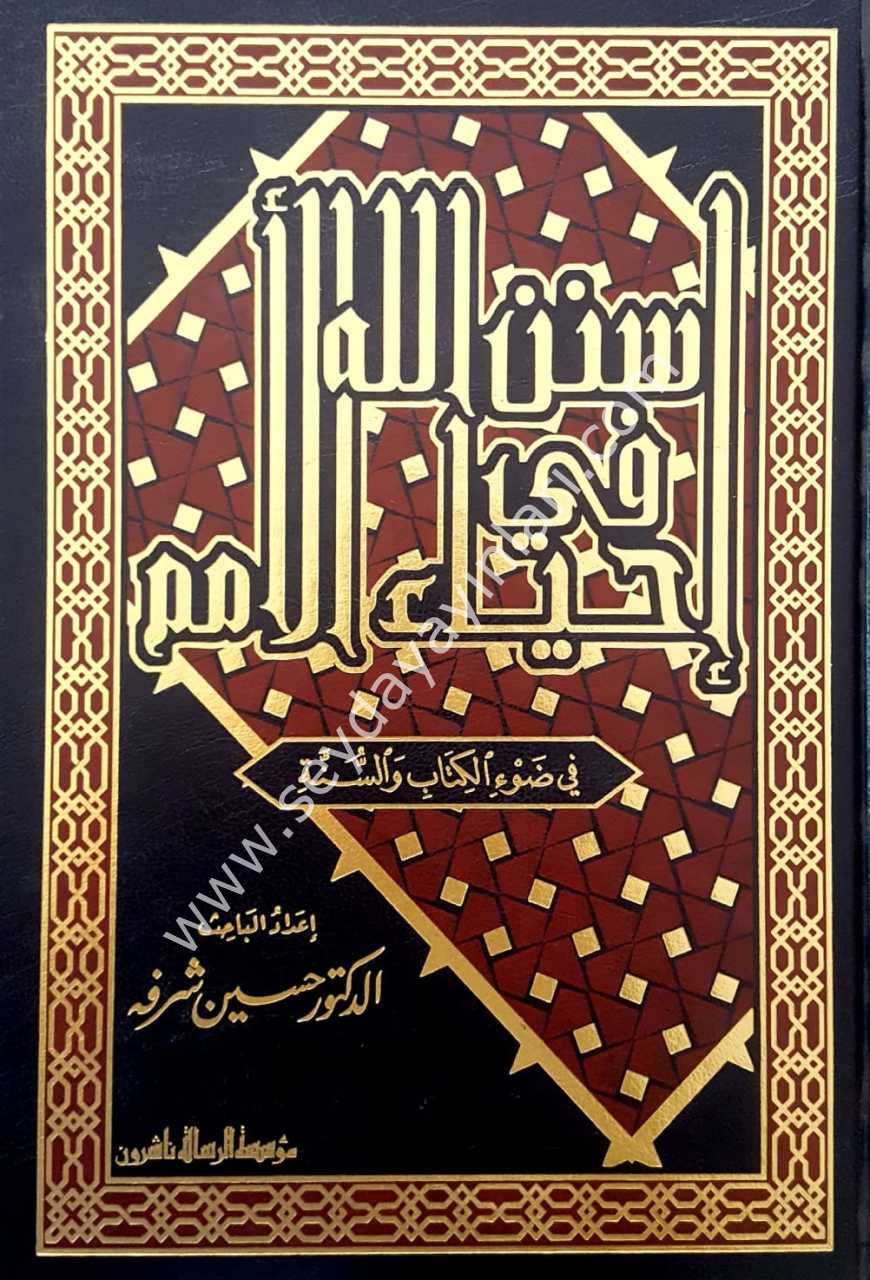 سنن الله
في
إحياء الأمم
في ضَوْءِ الكِتَابِ وَالسُّنَّةِ
إعدادُ البَاحِث
الدكتور حسين شرفه
مؤسسة الرسالة ناشرون
www.seydayayinlari.com